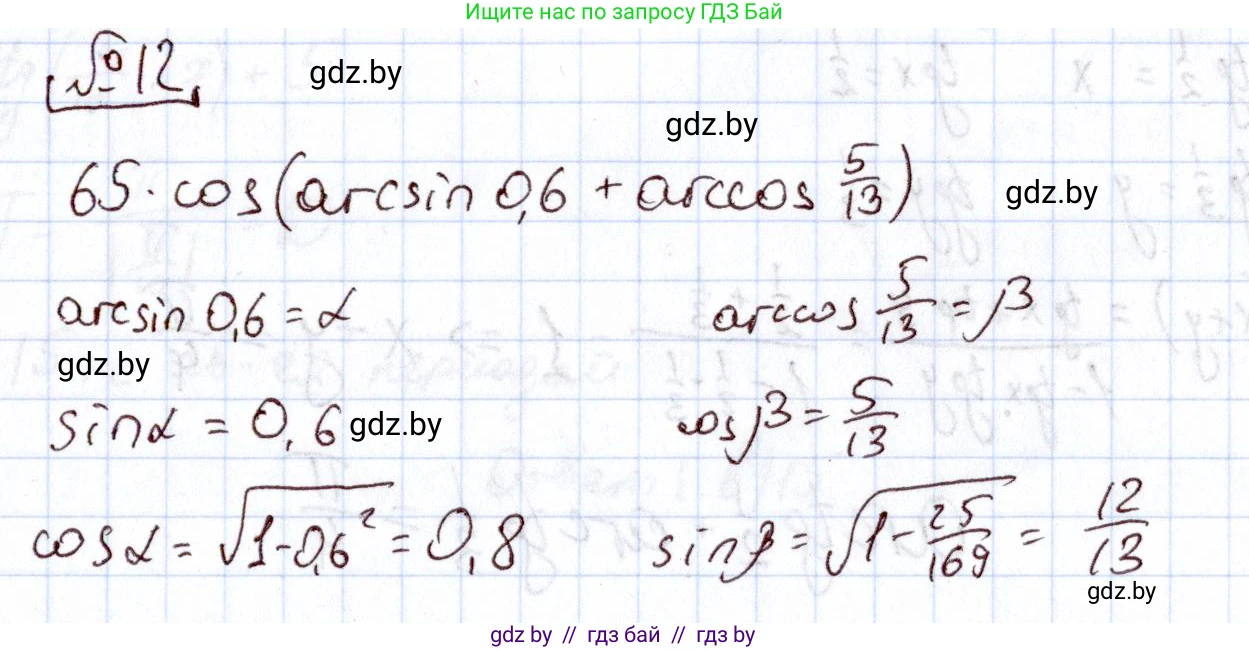 Ищите нас по запросу ГДЗ Бай
№ 12
gdz.by
gdz.by
65 · cos(arcsin 0,6 + arccos 5/13)
gdz.by
arcsin 0,6 = α
arccos 5/13 = β
gdz.by
sin α = 0,6
gdz.by
cos β = 5/13
cos α = √(1-0,6²) = 0,8
sin β = √(1 - 25/169) = 12/13
gdz.by
gdz by // гдз бай // гдз by